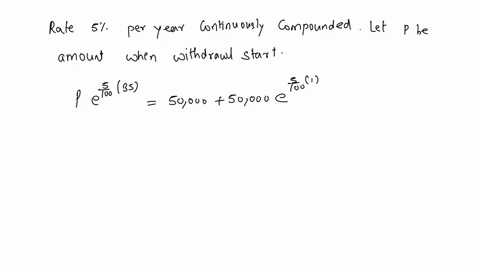 Rate 5% per year continuously compounded. Let P be
amount when withdrawl start.
P e^{5/100 (35)} = 50,000 + 50,000 e^{5/100 (1)}